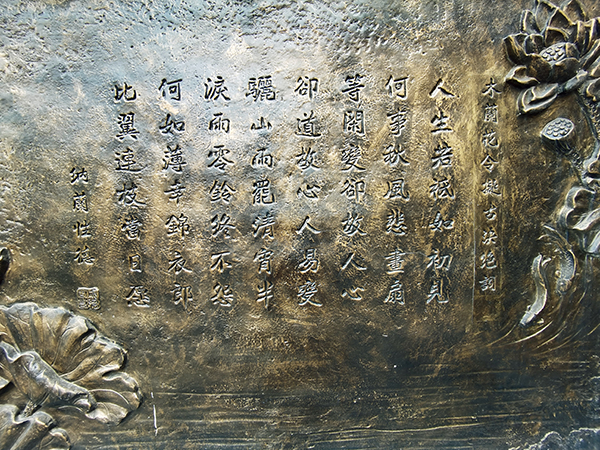 木蘭花令擬古決絶詞
人生若祗如初見
何事秋風悲畫扇
等閑變卻故人心
卻道故心人易變
驪山雨罷清宵半
淚雨零鈴終不怨
何如薄幸錦衣郎
比翼連枝當日愿
納蘭性德